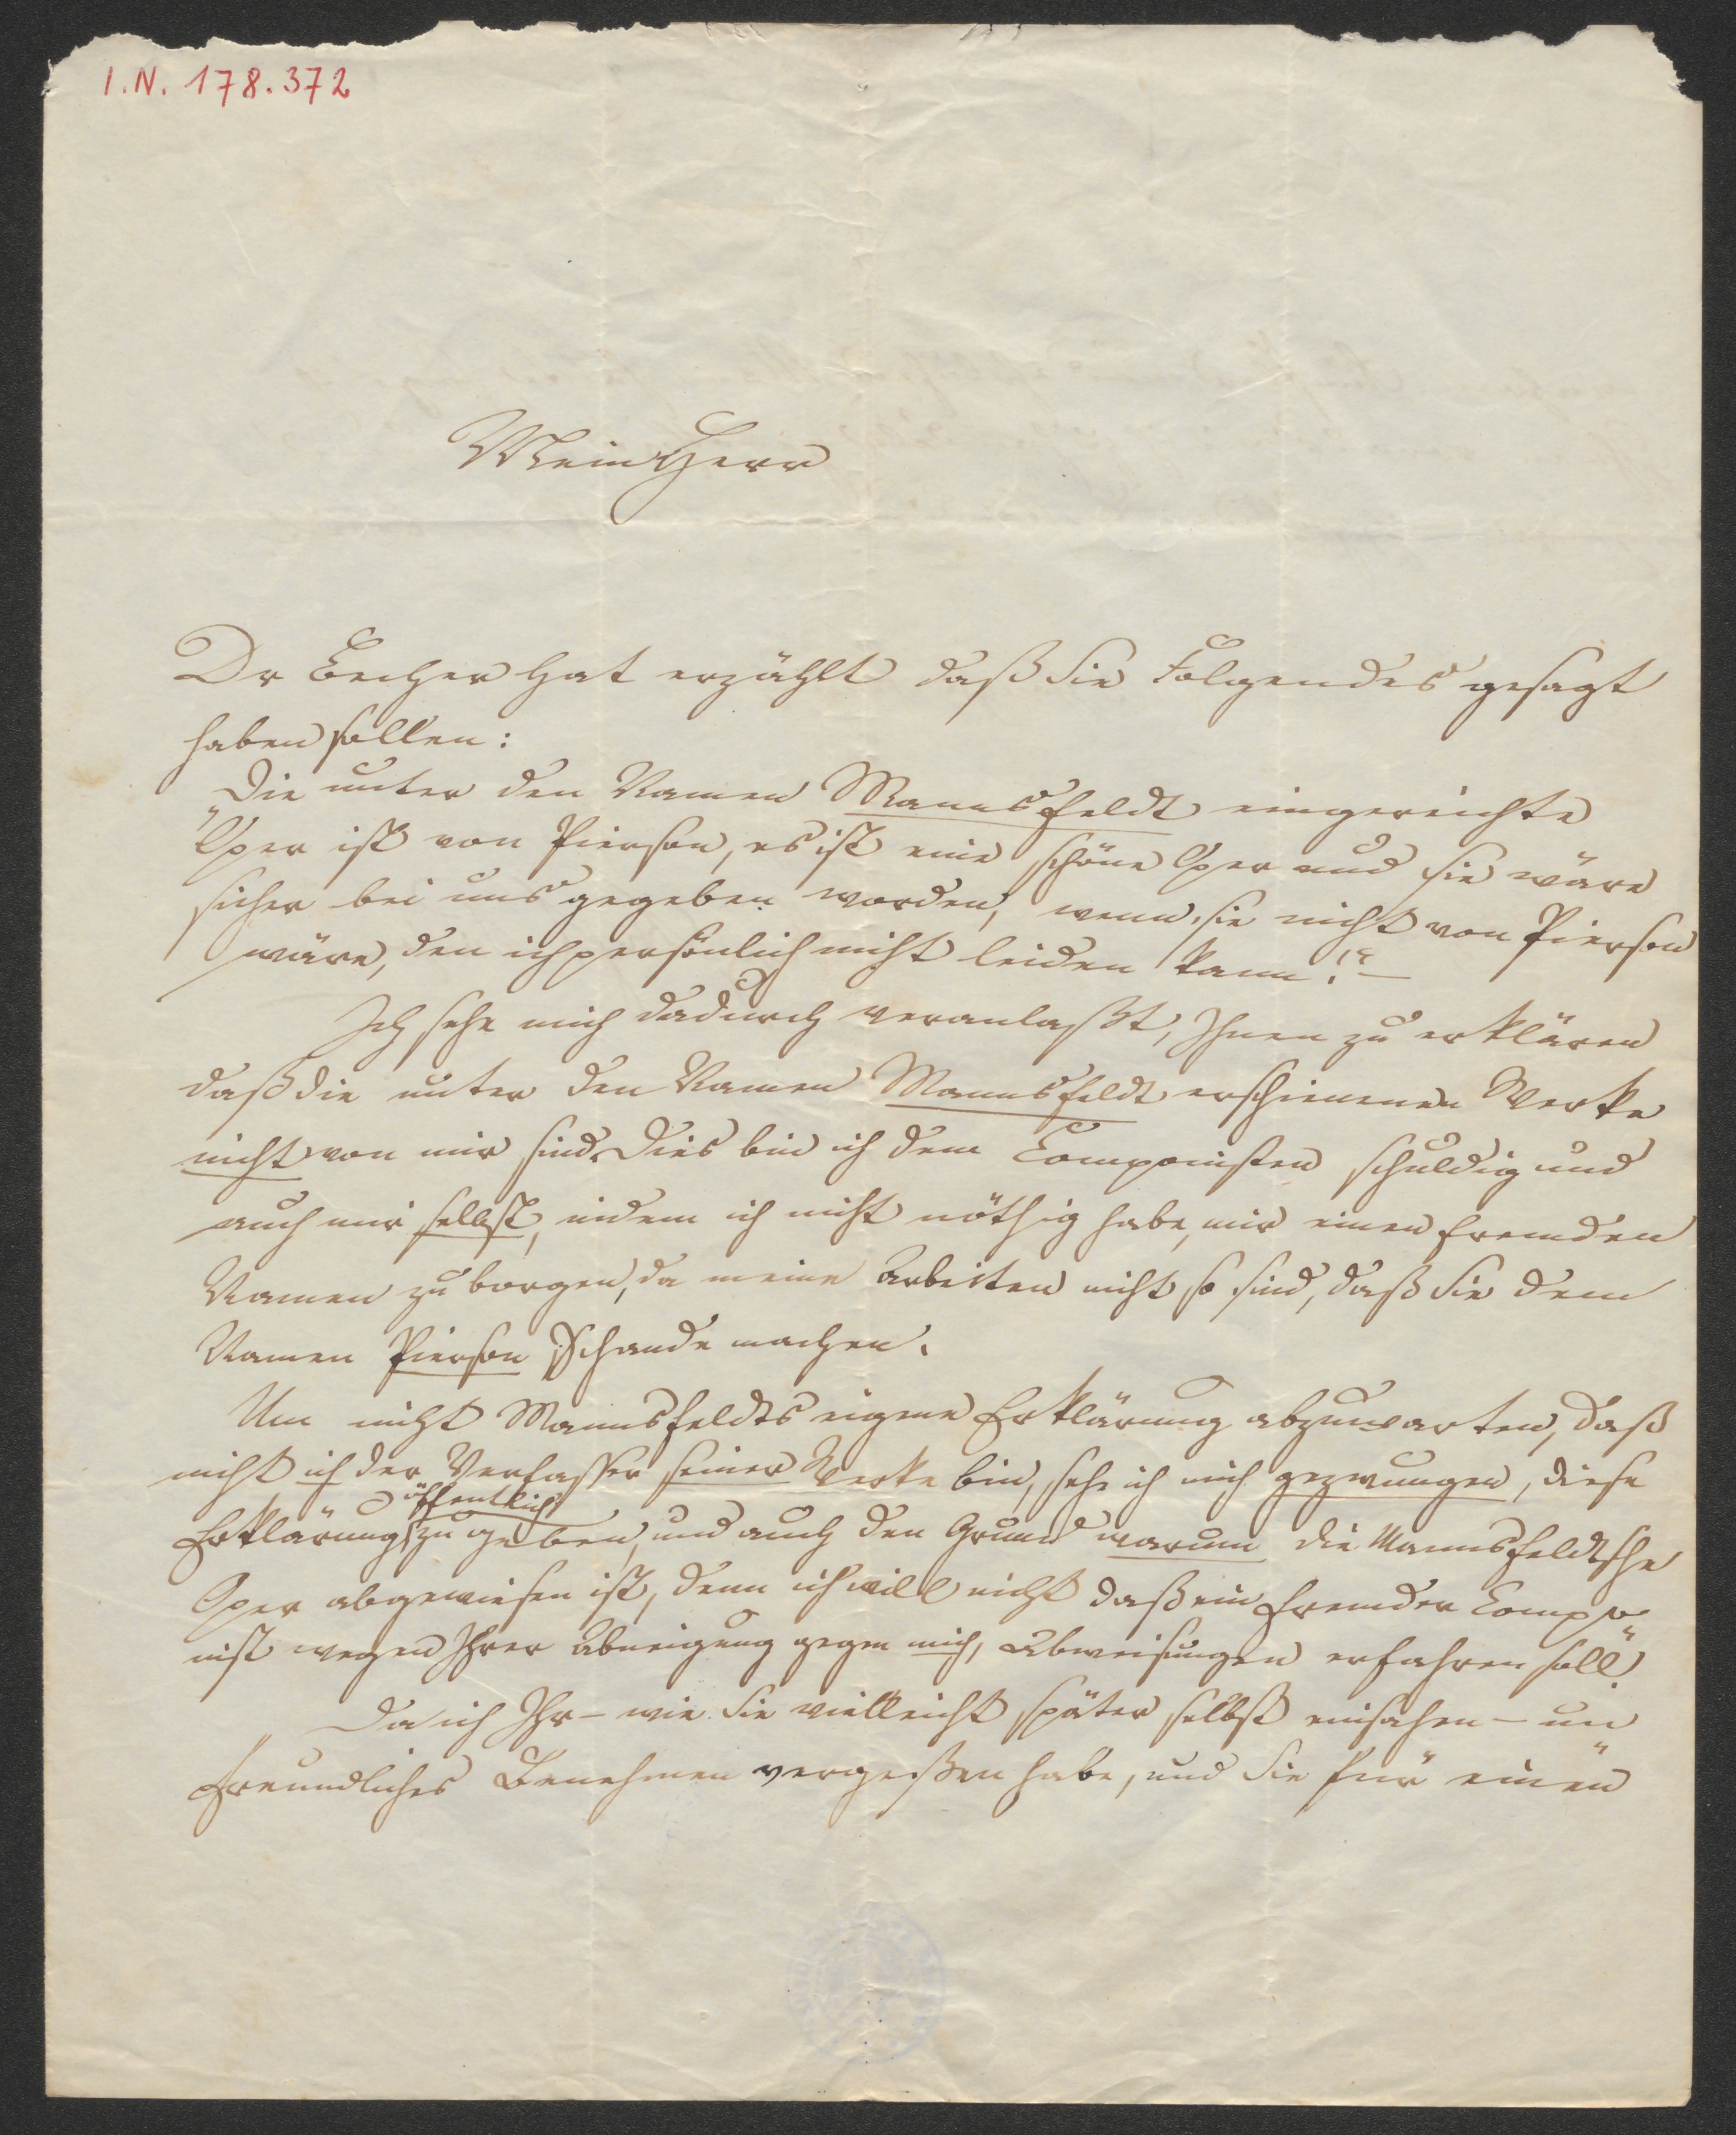 I.N. 178.372
Mein Herr
Dr Becher hat erzählt daß Sie Folgendes gesagt
haben sollen:
„Die unter den Namen Mannsfeldt eingereichte
Oper ist von Pierson, es ist eine schöne Oper und sie wäre
sicher bei uns gegeben worden, wenn sie nicht von Pierson
wäre, den ich persönlich nicht leiden kann!“ —
Ich sehe mich dadurch veranlaßt, Ihnen zu erklären
daß die unter den Namen Mannsfeldt erschienenen Werke
nicht von mir sind. Dies bin ich dem Componisten schuldig und
auch mir selbst, indem ich nicht nöthig habe, mir einen fremden
Namen zu borgen, da meine Arbeiten nicht so sind, daß sie dem
Namen Pierson Schande machen.
Um nicht Mannsfeldts eigene Erklärung abzuwarten, daß
nicht ich der Verfasser seiner Werke bin, sehe ich mich gezwungen, diese
öffentlich
Erklärung zu geben, und auch den Grund warum die Mannsfeldtsche
Oper abgewiesen ist, denn ich will nicht daß ein fremder Compo=
nist wegen Ihrer Abneigung gegen mich, Abweisungen erfahren soll.
Da ich Ihr – wie Sie vielleicht später selbst einsahen – un
freundliches Benehmen vergeßen habe, und Sie für einen